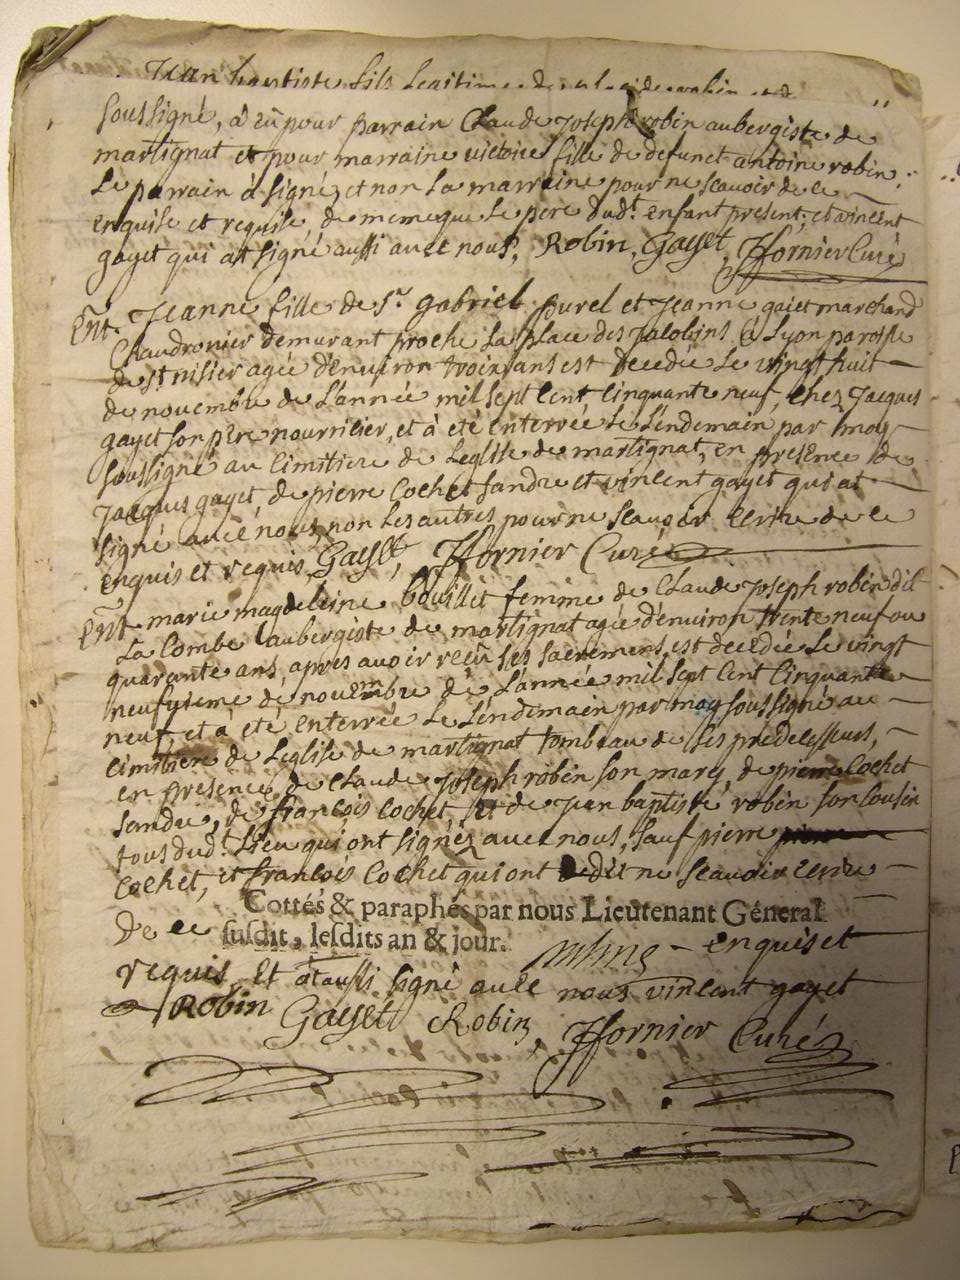 Jean baptiste fils Legitime de
sousigné, a eû pour parrain Claude Joseph robin aubergiste de
martignat et pour marraine victoire fille de defunct antoine robin.
Le parrain à signé, et non La marraine pour ne scavoir de ce
enquise et requise, de meme que Le pere dud.t enfant present, et vincent
gayet qui at signé aussi avec nous, Robin, Gayet, Fornier Curé
Ent. Jeanne fille de S.r gabriel Purel et Jeanne gaiet marchand
Chaudronier demurant proche La place des Jacobins à Lyon paroisse
de St nisier agée d'environ trois ans est decedée Le vingt huit
de novembre de L'année mil sept cent cinquante neuf, chez Jacques
gayet son père nourricier, et à été enterrée Le Lendemain par moy
soussigné au Cimitiere de L'eglise de martignat, en presence de
Jacques gayet de pierre Cochet sandre et vincent gayet qui at
signé avec nous, non Les autres pour ne scavoir ecrire de ce
enquis et requis, Gayet, Fornier Curé
Ent. marie magdeleine bouillet femme de Claude Joseph robin dit
La Combe aubergiste de martignat agée d'environ trente neuf ou
quarante ans, apres avoir reçu ses sacremens, est decedée Le vingt
neufvieme de novembre de L'année mil sept cent cinquante
neuf, et à été enterrée Le Lendemain par moy soussigné au
Cimitiere de L'eglise de martignat tombeau de ses predecesseurs,
en presence de Claude Joseph robin son mary, de pierre Cochet
sandre, de françois Cochet, et de Jean baptiste robin son cousin
tous dud.t Lieu qui ont signés avec nous, sauf pierre
Cochet, et françois Cochet qui ont dit ne scavoir ecrire
Cottés & paraphés par nous Lieutenant Géneral
de ce susdit, lesdits an & jour. enquis et
requis, Et at aussi signé avec nous vincent gayet
Robin Gayet Robin Fornier Curé